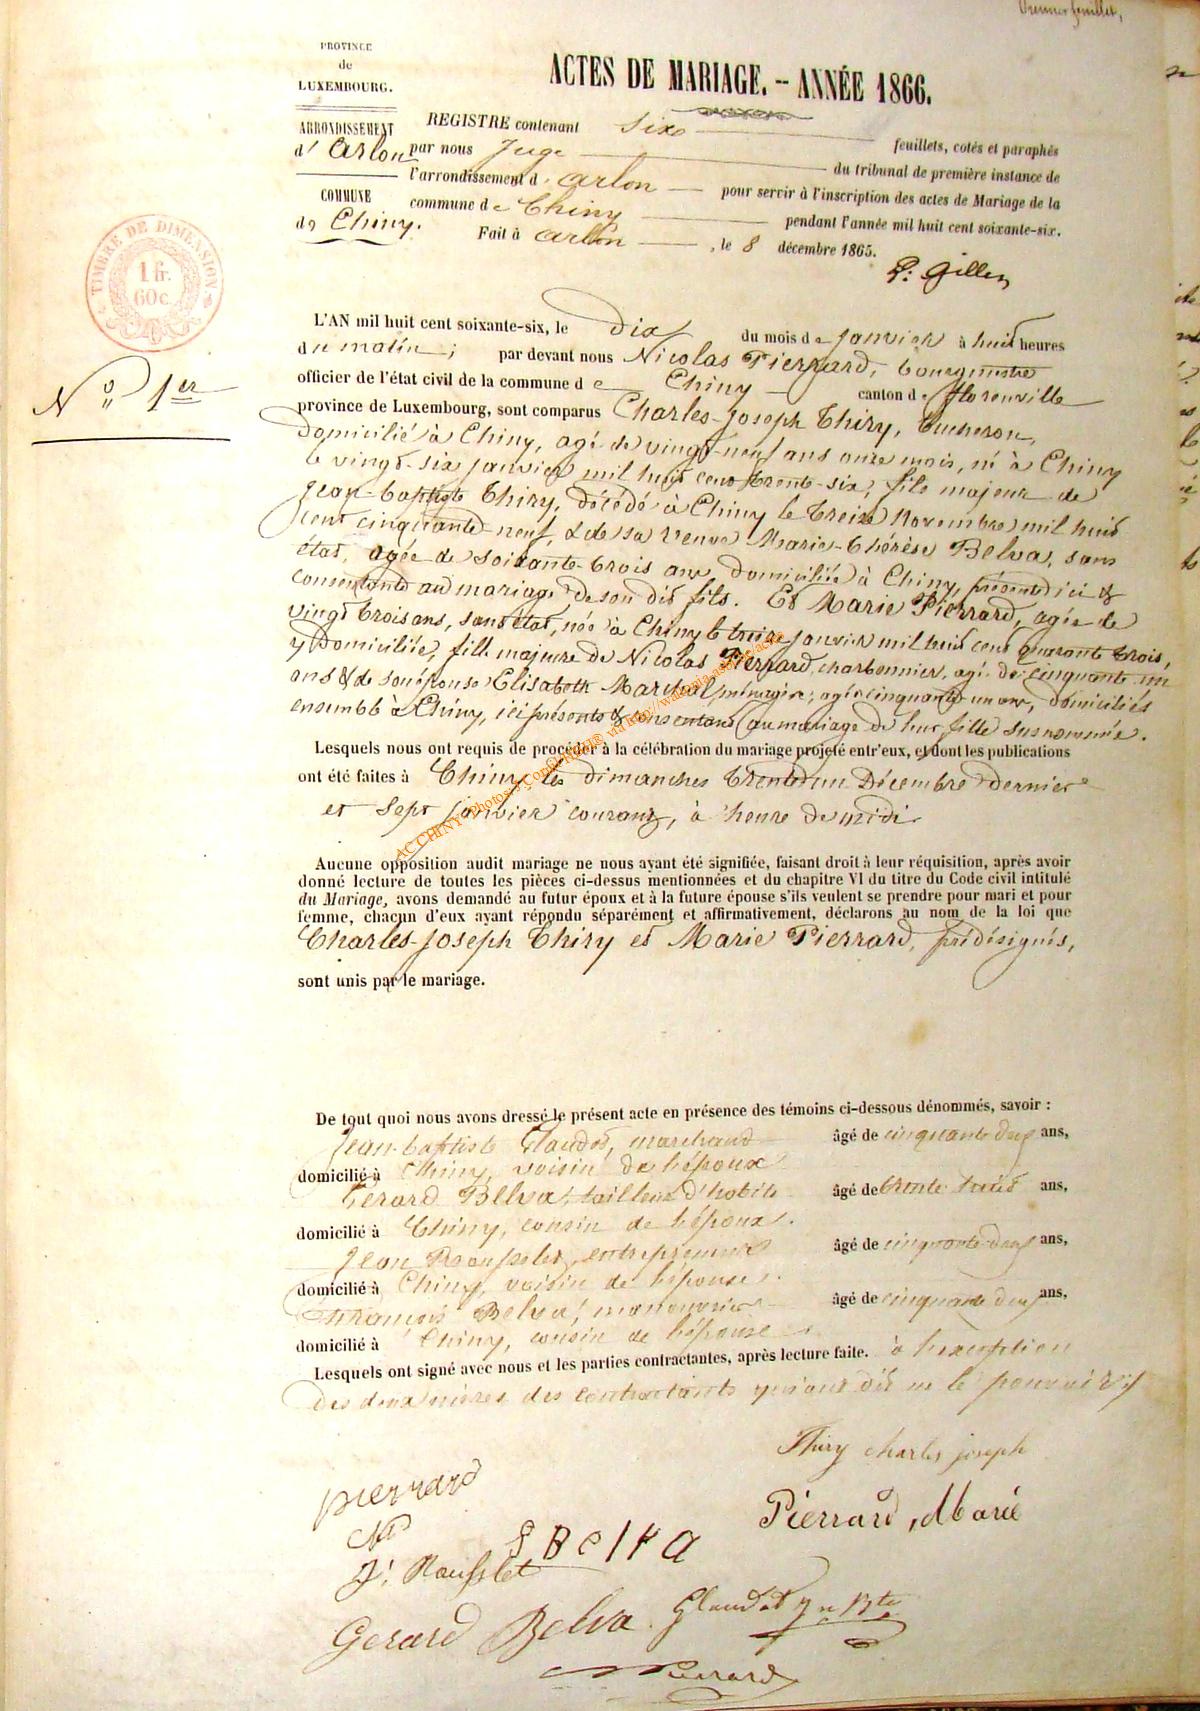 Premier feuillet,
PROVINCE
de
LUXEMBOURG.
ARRONDISSEMENT
d'Arlon
COMMUNE
de Chiny.
TIMBRE DE DIMENSION
1 fr.
60 c.
N° 1er
ACTES DE MARIAGE. -- ANNÉE 1866.
REGISTRE contenant Six feuillets, cotés et paraphés
par nous Juge du tribunal de première instance de
l'arrondissement d'Arlon pour servir à l'inscription des actes de Mariage de la
commune de Chiny pendant l'année mil huit cent soixante-six.
Fait à Arlon, le 8 décembre 1865.
Gillen
L'AN mil huit cent soixante-six, le Dix du mois de janvier à huit heures
du matin; par devant nous Nicolas Pierrard, bourgmestre
officier de l'état civil de la commune de Chiny canton de Florenville
province de Luxembourg, sont comparus Charles-Joseph Thiry, bucheron,
domicilié à Chiny, agé de vingt-neuf ans onze mois, né à Chiny
le vingt-six janvier mil huit cent trente-six, fils majeur de
Jean-baptiste Thiry, décédé à Chiny le treize Novembre mil huit
cent cinquante-neuf, & de sa veuve Marie-Thérèse Belva, sans
état, agée de soixante-trois ans, domiciliée à Chiny, présente ici &
consentante au mariage de son dit fils. Et Marie Pierrard, agée de
vingt trois ans, sans état, née à Chiny le treize janvier mil huit cent quarante trois,
y domiciliée, fille majeure de Nicolas Pierrard, charbonnier, agé de cinquante un
ans & de son épouse Elisabeth Marchal, ménagère, agée cinquante un ans, domiciliés
ensemble à Chiny, ici présents & consentans au mariage de leur fille susnommée.
Lesquels nous ont requis de procéder à la célébration du mariage projeté entr'eux, et dont les publications
ont été faites à Chiny, les dimanches trente et un Décembre dernier
et Sept janvier courant, à l'heure de midi.
Aucune opposition audit mariage ne nous ayant été signifiée, faisant droit à leur réquisition, après avoir
donné lecture de toutes les pièces ci-dessus mentionnées et du chapitre VI du titre du Code civil intitulé
du Mariage, avons demandé au futur époux et à la future épouse s'ils veulent se prendre pour mari et pour
femme, chacun d'eux ayant répondu séparément et affirmativement, déclarons au nom de la loi que
Charles-Joseph Thiry et Marie Pierrard, prédésignés,
sont unis par le mariage.
De tout quoi nous avons dressé le présent acte en présence des témoins ci-dessous dénommés, savoir :
Jean-baptiste Glaudot, marchand âgé de cinquante deux ans,
domicilié à Chiny, voisin de l'époux
Gerard Belva, tailleur d'habits âgé de trente huit ans,
domicilié à Chiny, cousin de l'époux.
Jean Rousselet, entrepreneur âgé de cinquante deux ans,
domicilié à Chiny, voisin de l'épouse.
François Belva, manouvrier âgé de cinquante deux ans,
domicilié à Chiny, cousin de l'épouse.
Lesquels ont signé avec nous et les parties contractantes, après lecture faite. à l'exception
des deux mères des contractants qui ont dit ne le pouvoir
Thiry charles joseph
pierrard
Pierrard, Marie
N
F Belva
J. Rousselet
Gerard Belva Glaudot Jn Bte
N Pierrard
AC CHINY - Photos J. Confe-Henri® via http://wallonia.asbl.be/actes